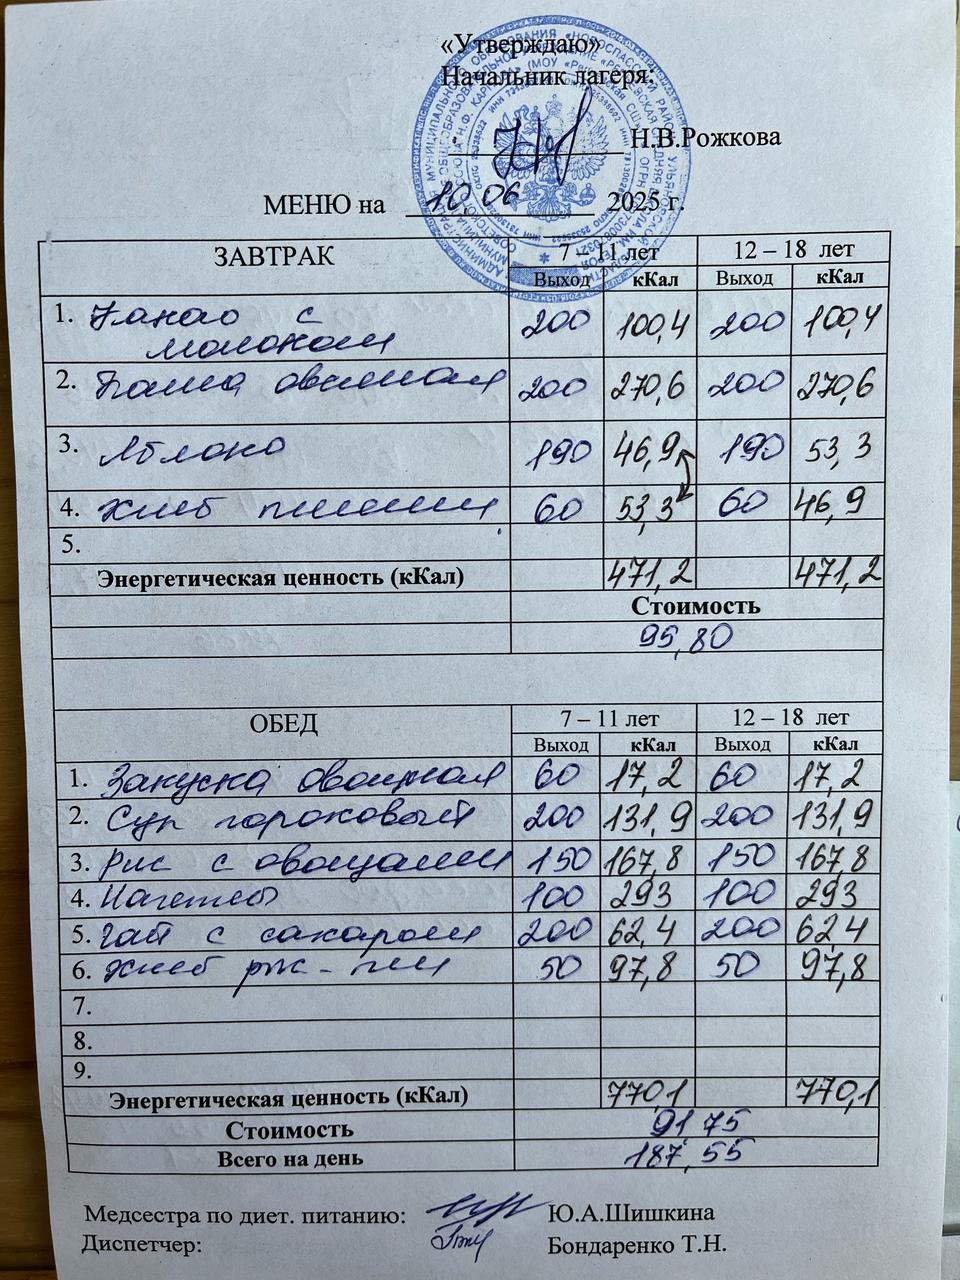 «Утверждаю»
Начальник лагеря:
Н.В.Рожкова
МЕНЮ на 10,06 2025 г.
ЗАВТРАК 7 – 11 лет 12 – 18 лет
Выход кКал Выход кКал
1. Какао с молоком 200 100,4 200 100,4
2. Каша овсяная 200 270,6 200 270,6
3. Яблоко 190 46,9 190 53,3
4. Хлеб пшенич 60 53,3 60 46,9
5.
Энергетическая ценность (кКал) 471,2 471,2
Стоимость
95,80
ОБЕД 7 – 11 лет 12 – 18 лет
Выход кКал Выход кКал
1. Закуска овощная 60 17,2 60 17,2
2. Суп гороховый 200 131,9 200 131,9
3. Рис с овощами 150 167,8 150 167,8
4. Нагетсы 100 293 100 293
5. Чай с сахаром 200 62,4 200 62,4
6. Хлеб рж - пш 50 97,8 50 97,8
7.
8.
9.
Энергетическая ценность (кКал) 770,1 770,1
Стоимость 91,75
Всего на день 187,55
Медсестра по диет. питанию: Ю.А.Шишкина
Диспетчер: Бондаренко Т.Н.